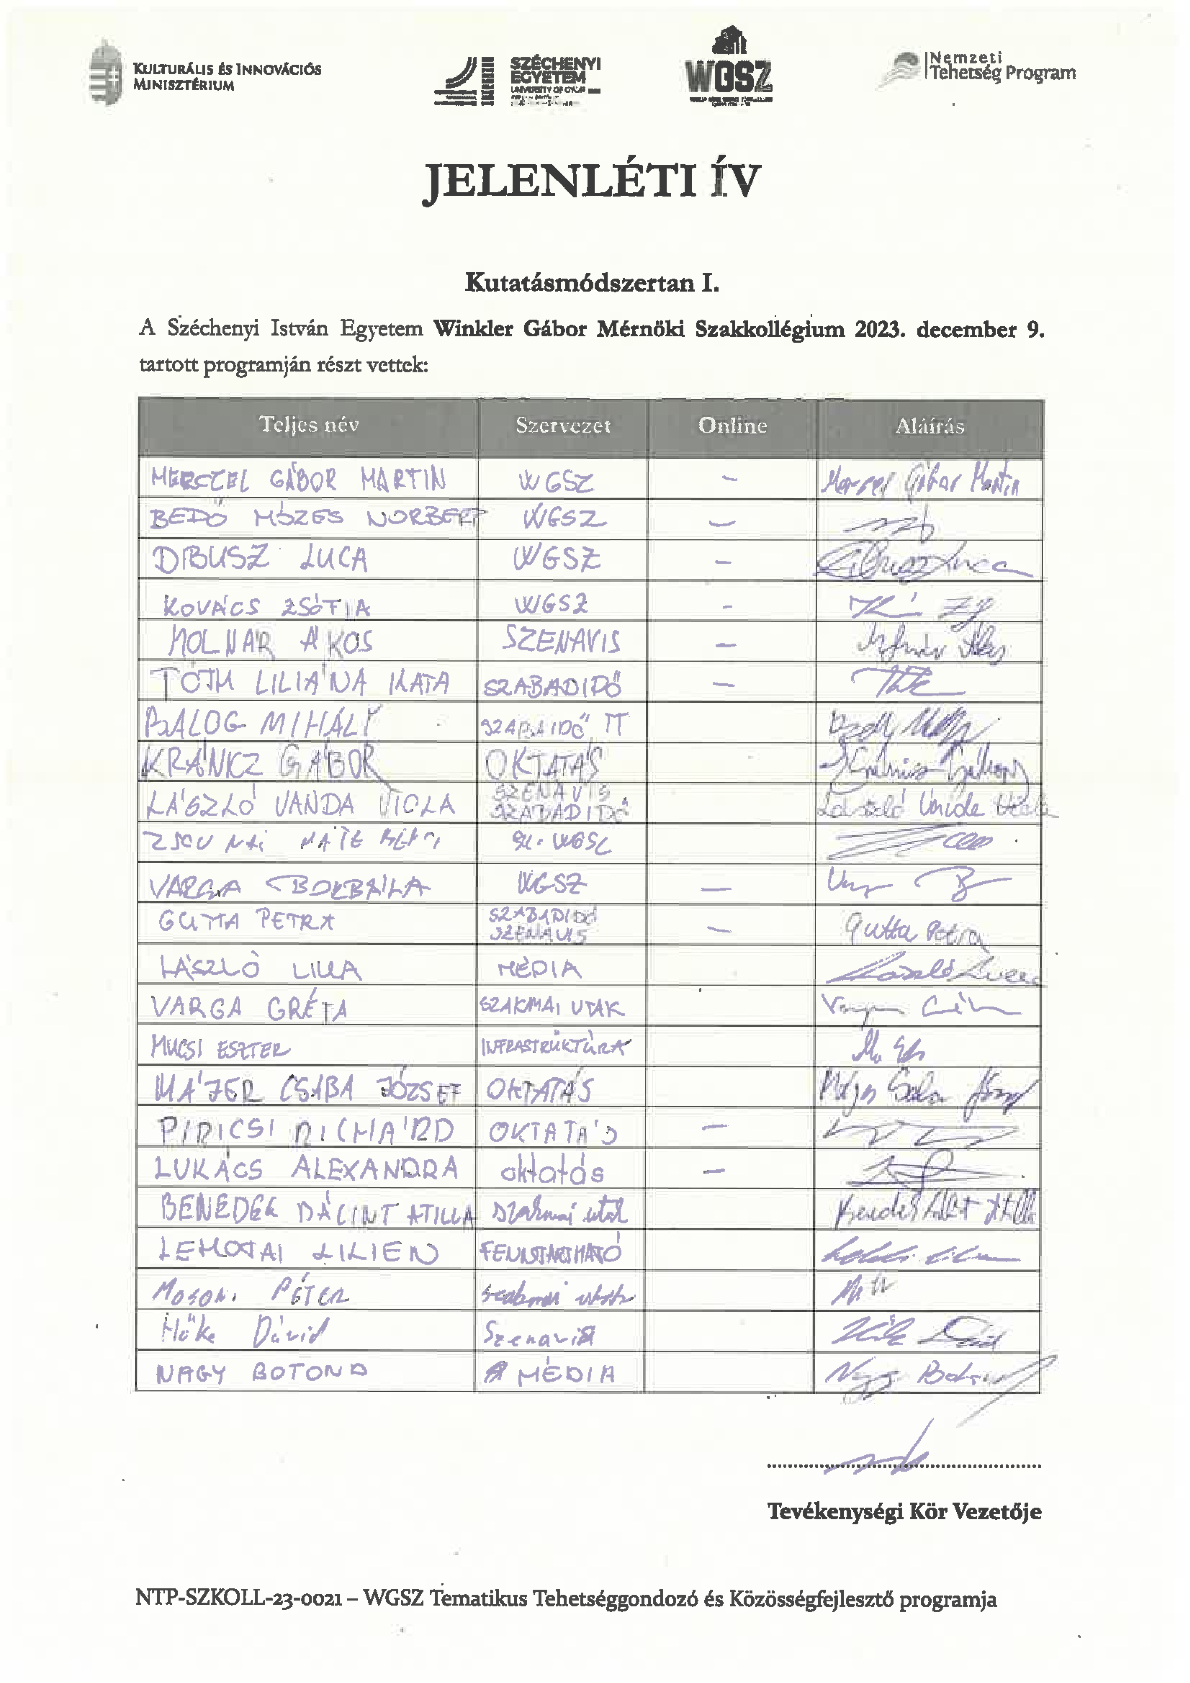 KULTURÁLIS ÉS INNOVÁCIÓS
MINISZTÉRIUM
SZÉCHENYI
EGYETEM
UNIVERSITY OF GYŐR
WGSZ
Nemzeti
Tehetség Program
JELENLÉTI ÍV
Kutatásmódszertan I.
A Széchenyi István Egyetem Winkler Gábor Mérnöki Szakkollégium 2023. december 9.
tartott programján részt vettek:
Teljes név Szervezet Online Aláírás
GÁBOR MARTIN WGSZ – Gábor Martin
BEDŐ MÓZES NORBERT WGSZ –
DIBUSZ LUCA WGSZ – Dibusz Luca
KOVÁCS ZSÓFIA WGSZ –
MOLNÁR ÁKOS SZENAVIS – Molnár Ákos
TÓTH LILIÁNA KATA SZABADIDŐ –
BALOG MIHÁLY SZABAIDŐ IT
KRÁNICZ GÁBOR OKTATÁS
LÁSZLÓ VANDA VIOLA SZENAVIS SZABADIDŐ László Vanda Viola
MÁTÉ WGSZ
VARGA BORBÁLA WGSZ –
GUTTA PETRA SZABADIDŐ SZENAVIS – Gutta Petra
LÁSZLÓ LILLA MÉDIA László
VARGA GRÉTA SZAKMAI UTAK
MUCSI ESZTER INFRASTRUKTÚRA
MÁJER CSABA JÓZSEF OKTATÁS
PIRICSI RICHÁRD OKTATÁS –
LUKÁCS ALEXANDRA oktatás –
BENEDEK BÁLINT ATILLA Szakmai utak
LEMOTAI LILIEN FENNTARTHATÓ
MOSONI PÉTER szakmai utak
Hőke Dávid Szenavis
NAGY BOTOND MÉDIA Nagy Botond
Tevékenységi Kör Vezetője
NTP-SZKOLL-23-0021 – WGSZ Tematikus Tehetséggondozó és Közösségfejlesztő programja